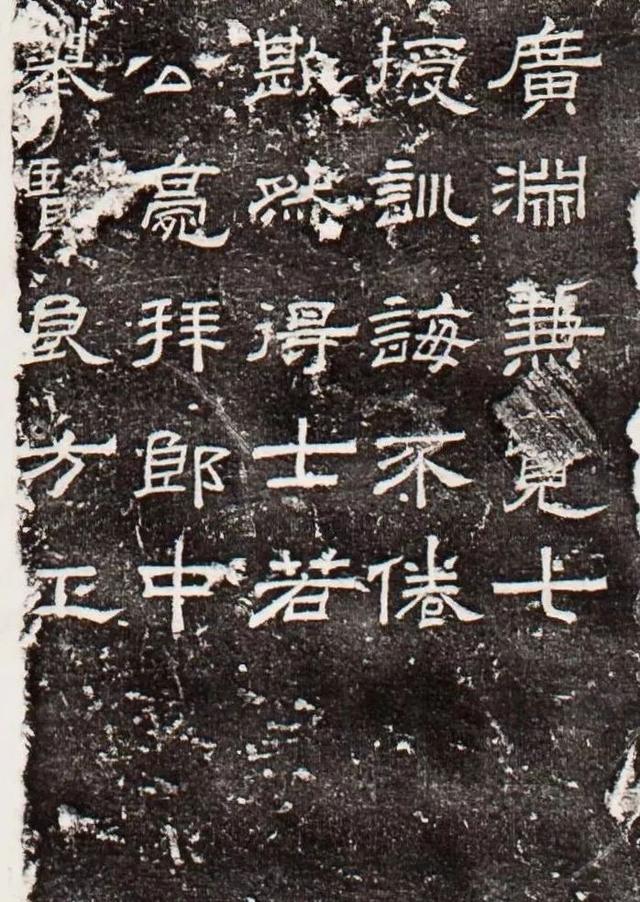 廣淵兼覽七
授訓誨不倦
然得士若
公拜郎中
賢良方正